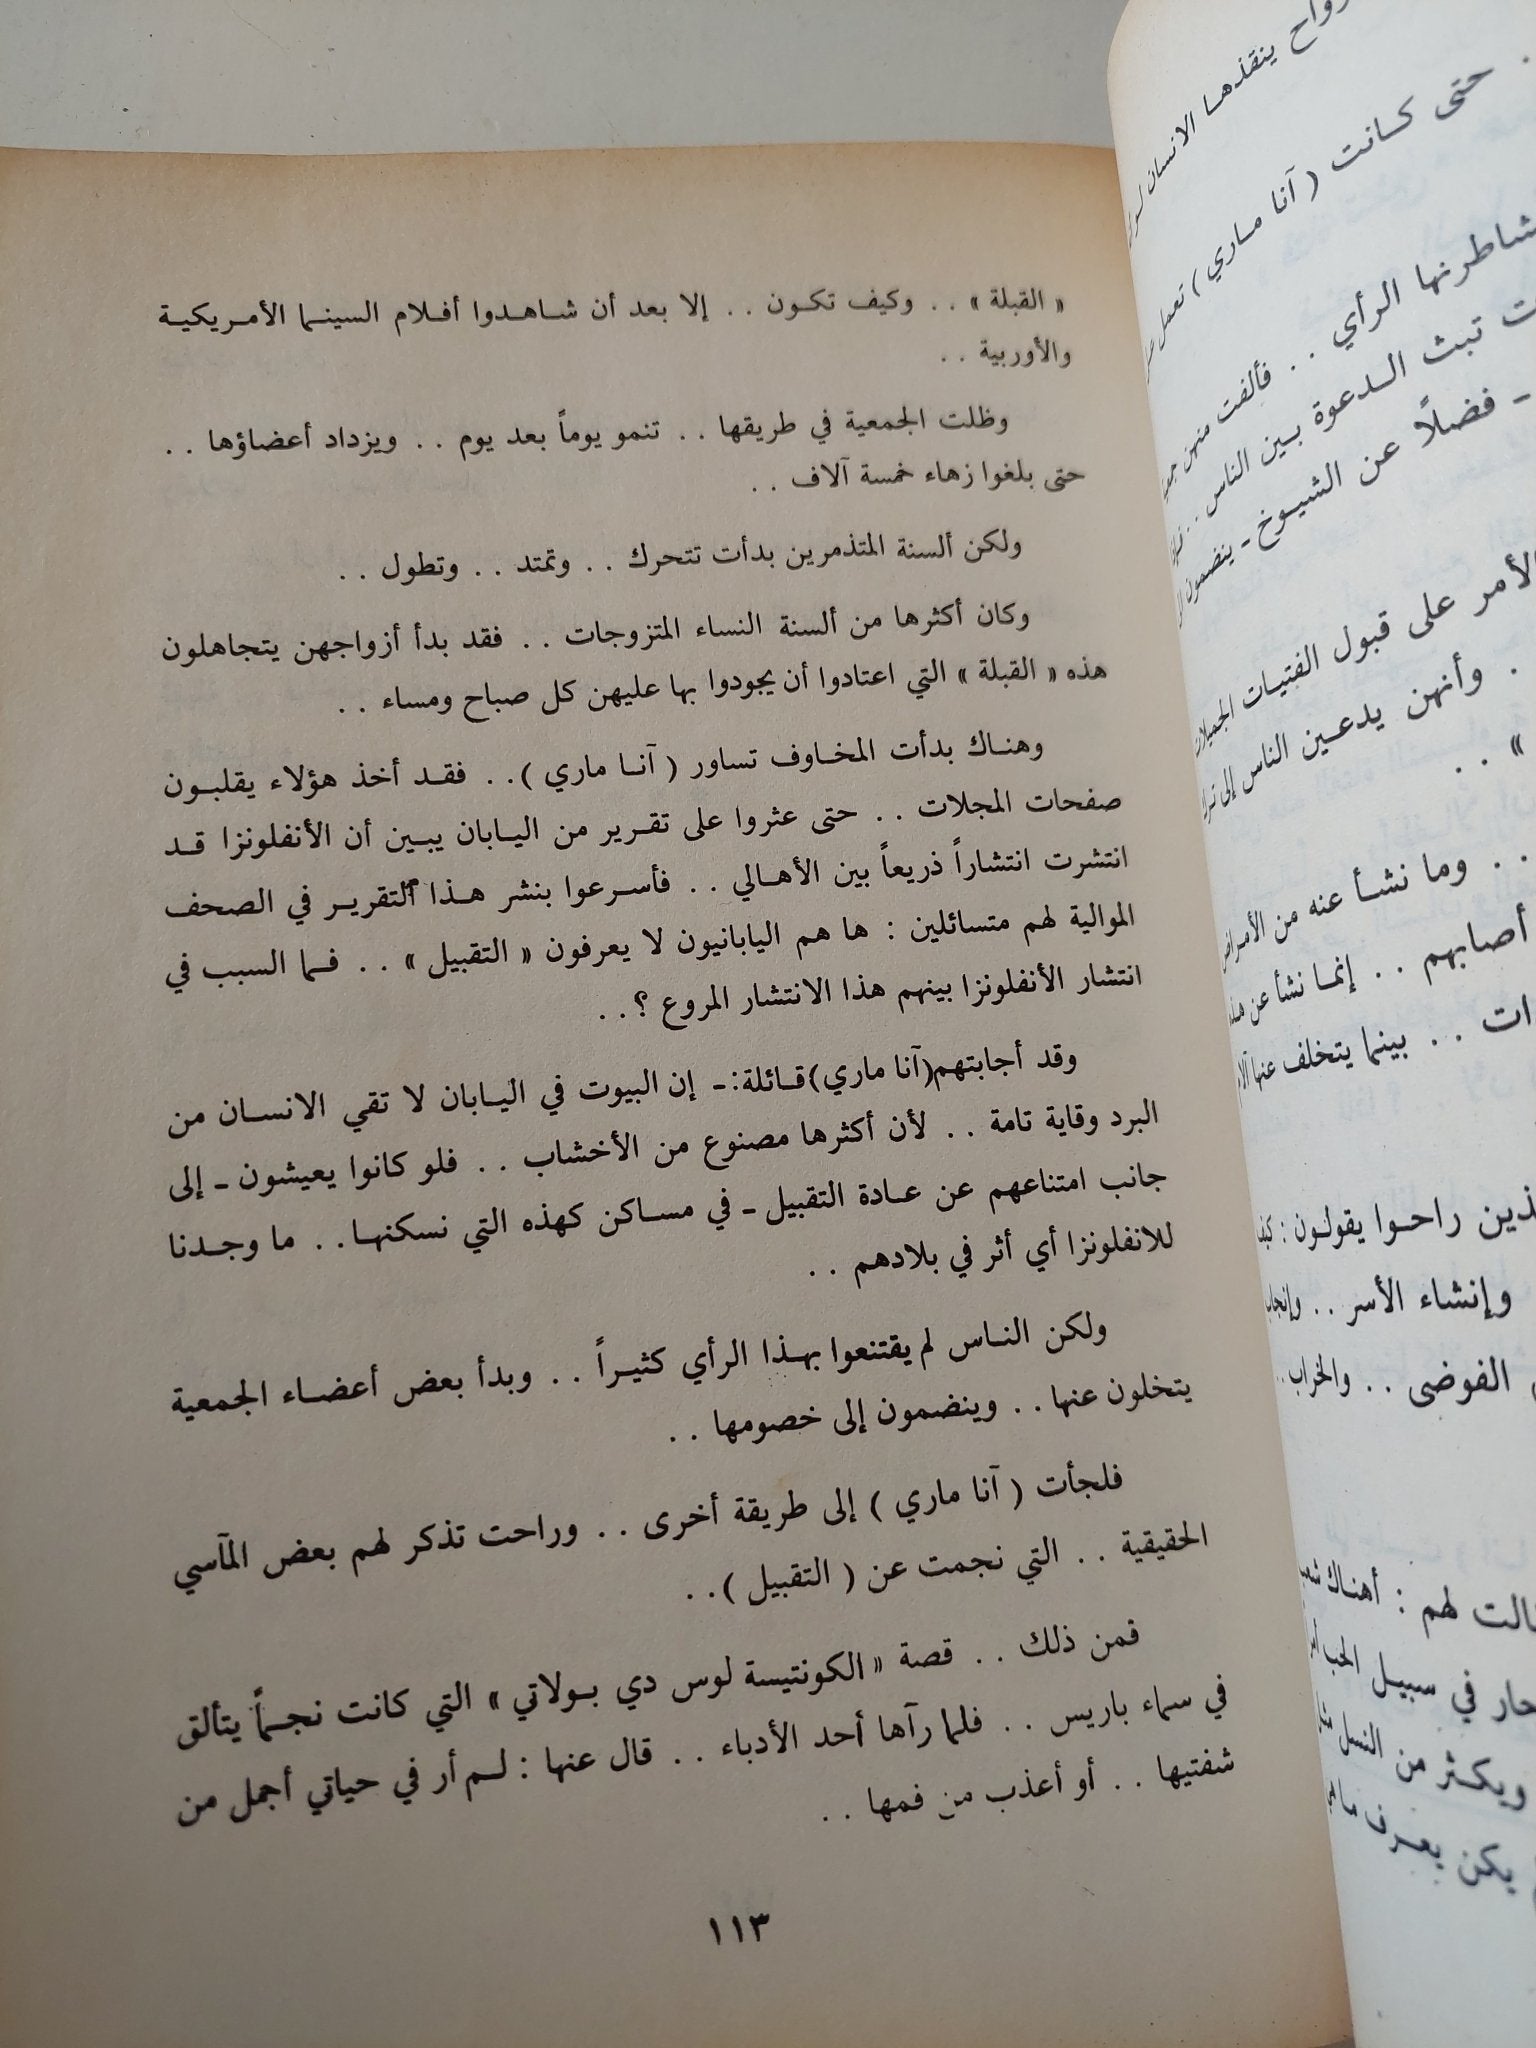 « القبلة » . . وكيف تكون . . إلا بعد أن شاهدوا أفلام السينما الأمريكية
والأوربية . .
وظلت الجمعية في طريقها . . تنمو يوماً بعد يوم . . ويزداد أعضاؤها . .
حتى بلغوا زهاء خمسة آلاف . .
ولكن ألسنة المتذمرين بدأت تتحرك . . وتمتد . . وتطول . .
وكان أكثرها من ألسنة النساء المتزوجات . . فقد بدأ أزواجهن يتجاهلون
هذه « القبلة » التي اعتادوا أن يجودوا بها عليهن كل صباح ومساء . .
وهناك بدأت المخاوف تساور ( آنا ماري ) . . فقد أخذ هؤلاء يقلبون
صفحات المجلات . . حتى عثروا على تقرير من اليابان يبين أن الأنفلونزا قد
انتشرت انتشاراً ذريعاً بين الأهالي . . فأسرعوا بنشر هذا التقرير في الصحف
الموالية لهم متسائلين : ها هم اليابانيون لا يعرفون « التقبيل » . . فما السبب في
انتشار الأنفلونزا بينهم هذا الانتشار المروع ؟ . .
وقد أجابتهم(آنا ماري)قائلة:ـ إن البيوت في اليابان لا تقي الانسان من
البرد وقاية تامة . . لأن أكثرها مصنوع من الأخشاب . . فلو كانوا يعيشون ـ إلى
جانب امتناعهم عن عادة التقبيل ـ في مساكن كهذه التي نسكنها . . ما وجدنا
للانفلونزا أي أثر في بلادهم . .
ولكن الناس لم يقتنعوا بهذا الرأي كثيراً . . وبدأ بعض أعضاء الجمعية
يتخلون عنها . . وينضمون إلى خصومها . .
فلجأت ( آنا ماري ) إلى طريقة أخرى . . وراحت تذكر لهم بعض المآسي
الحقيقية . . التي نجمت عن ( التقبيل ) . .
فمن ذلك . . قصة « الكونتيسة لوس دي بولاتي » التي كانت نجماً يتألق
في سماء باريس . . فلما رآها أحد الأدباء . . قال عنها : لم أر في حياتي أجمل من
شفتيها . . أو أعذب من فمها . .
١١٣
ينقذها الانسان
. حتى كانت ( آنا ماري ) تعمل
الرأي . . فألفت منهن
تبث الدعوة بين الناس . .
ـ فضلًا عن الشيوخ ـ ينضمون
الأمر على قبول الفتيات الجميلات
. وأنهن يدعين الناس إلى
» . .
. . وما نشأ عنه من الأمراض
أصابهم . . إنما نشأ عن
. . بينما يتخلف عنها
راحوا يقولون :
وإنشاء الأسر . .
الفوضى . . والخراب . .
لهم : أهناك
في سبيل الحب
ويكثر من النسل
يكن يعرف ما